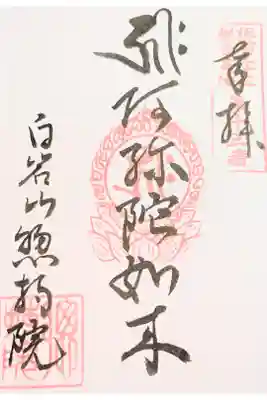 奉拝
阿弥陀如来
白岩山惣持院